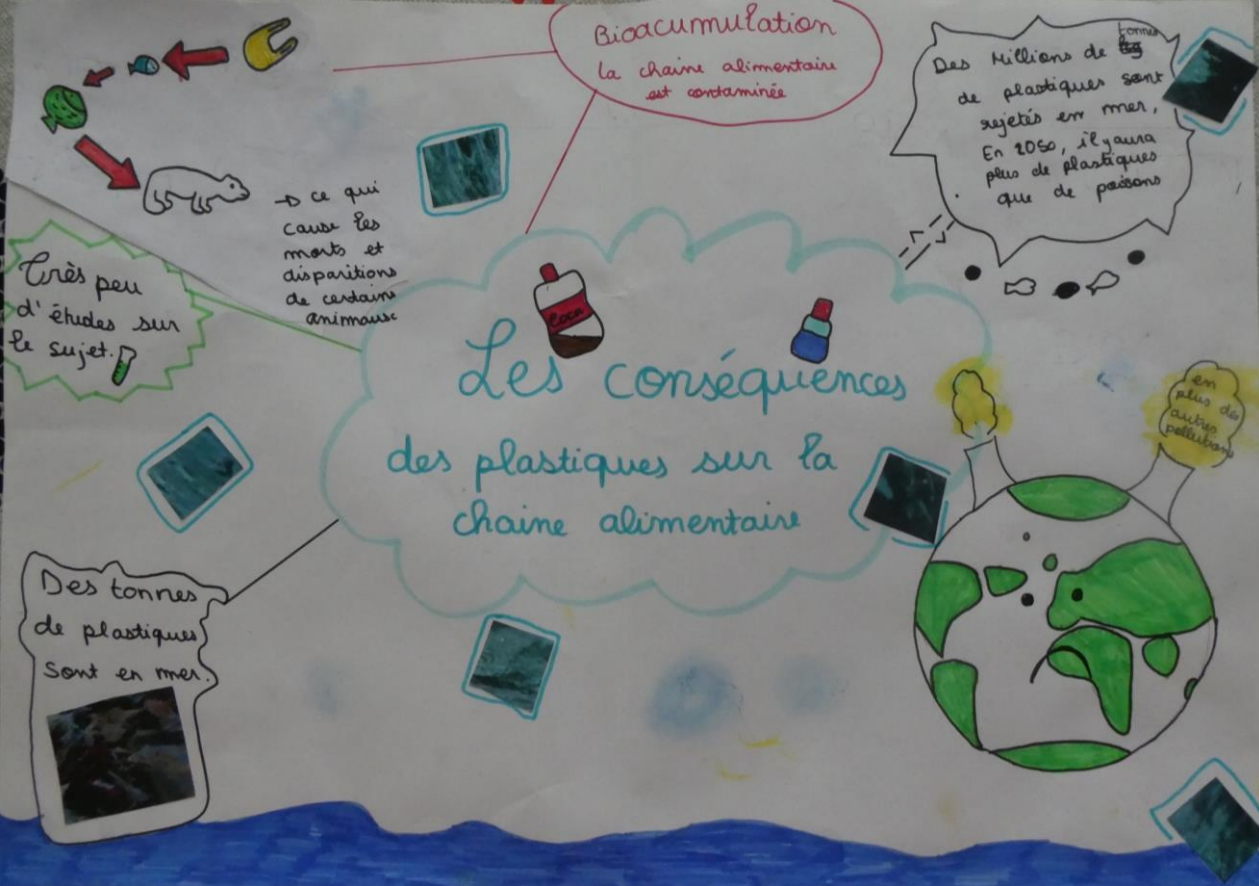 Bioacumulation
la chaine alimentaire
est contaminée
Des Millions de tonnes
de plastiques sont
rejetés en mer,
En 2050, il y aura
plus de plastiques
que de poissons
→ ce qui
cause les
morts et
disparitions
de certains
animause
Très peu
d'études sur
le sujet.
Coca
Les conséquences
des plastiques sur la
chaine alimentaire
en
plus des
autres
pollutions
Des tonnes
de plastiques
sont en mer.